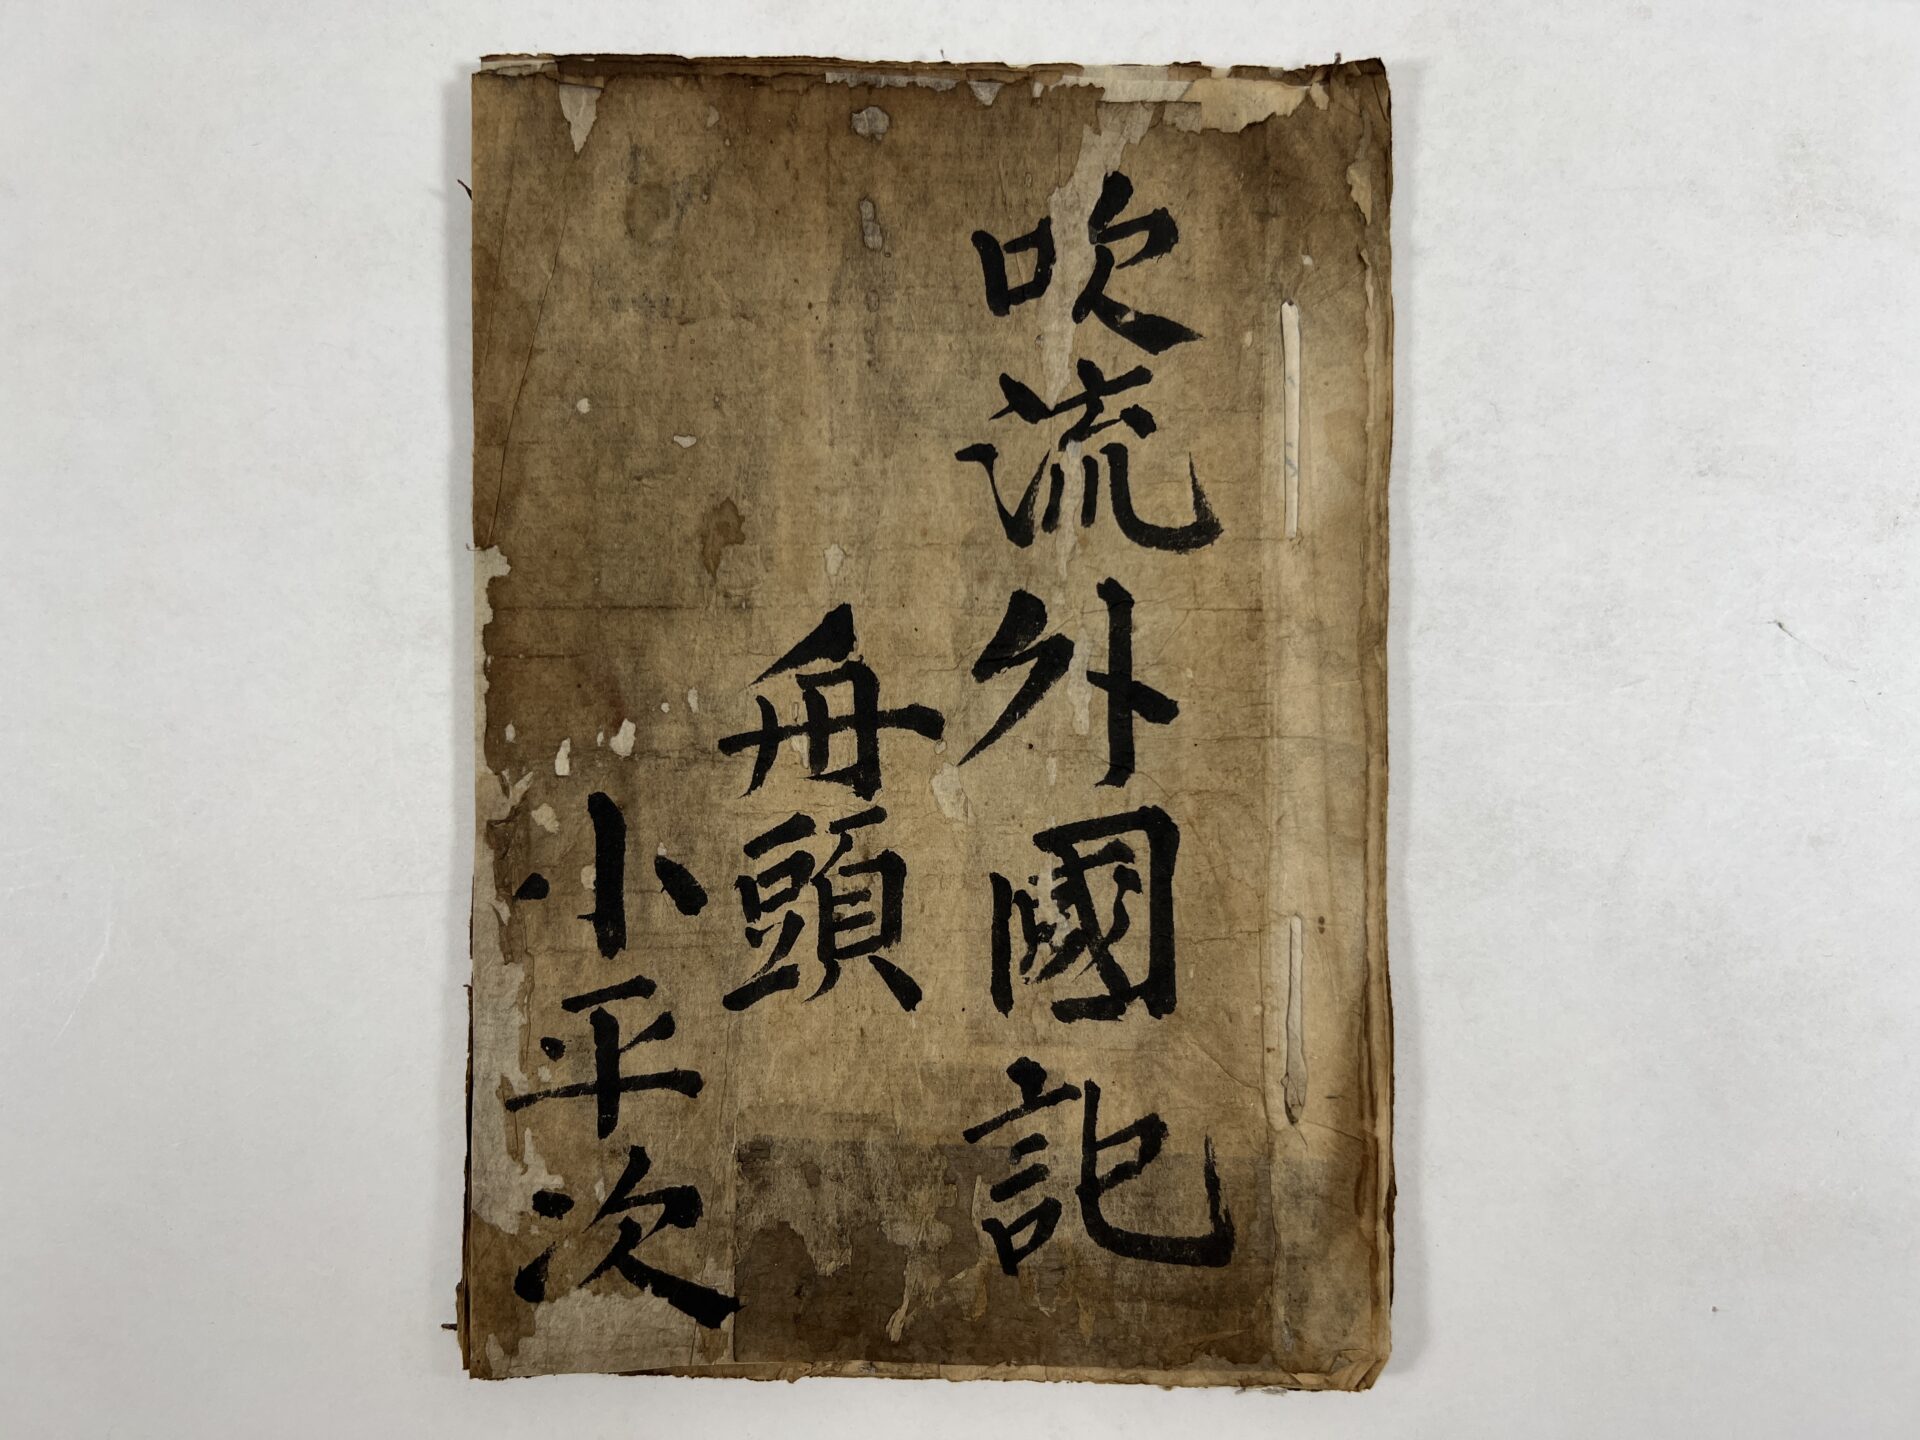 吹流外國記
舟頭
小平次